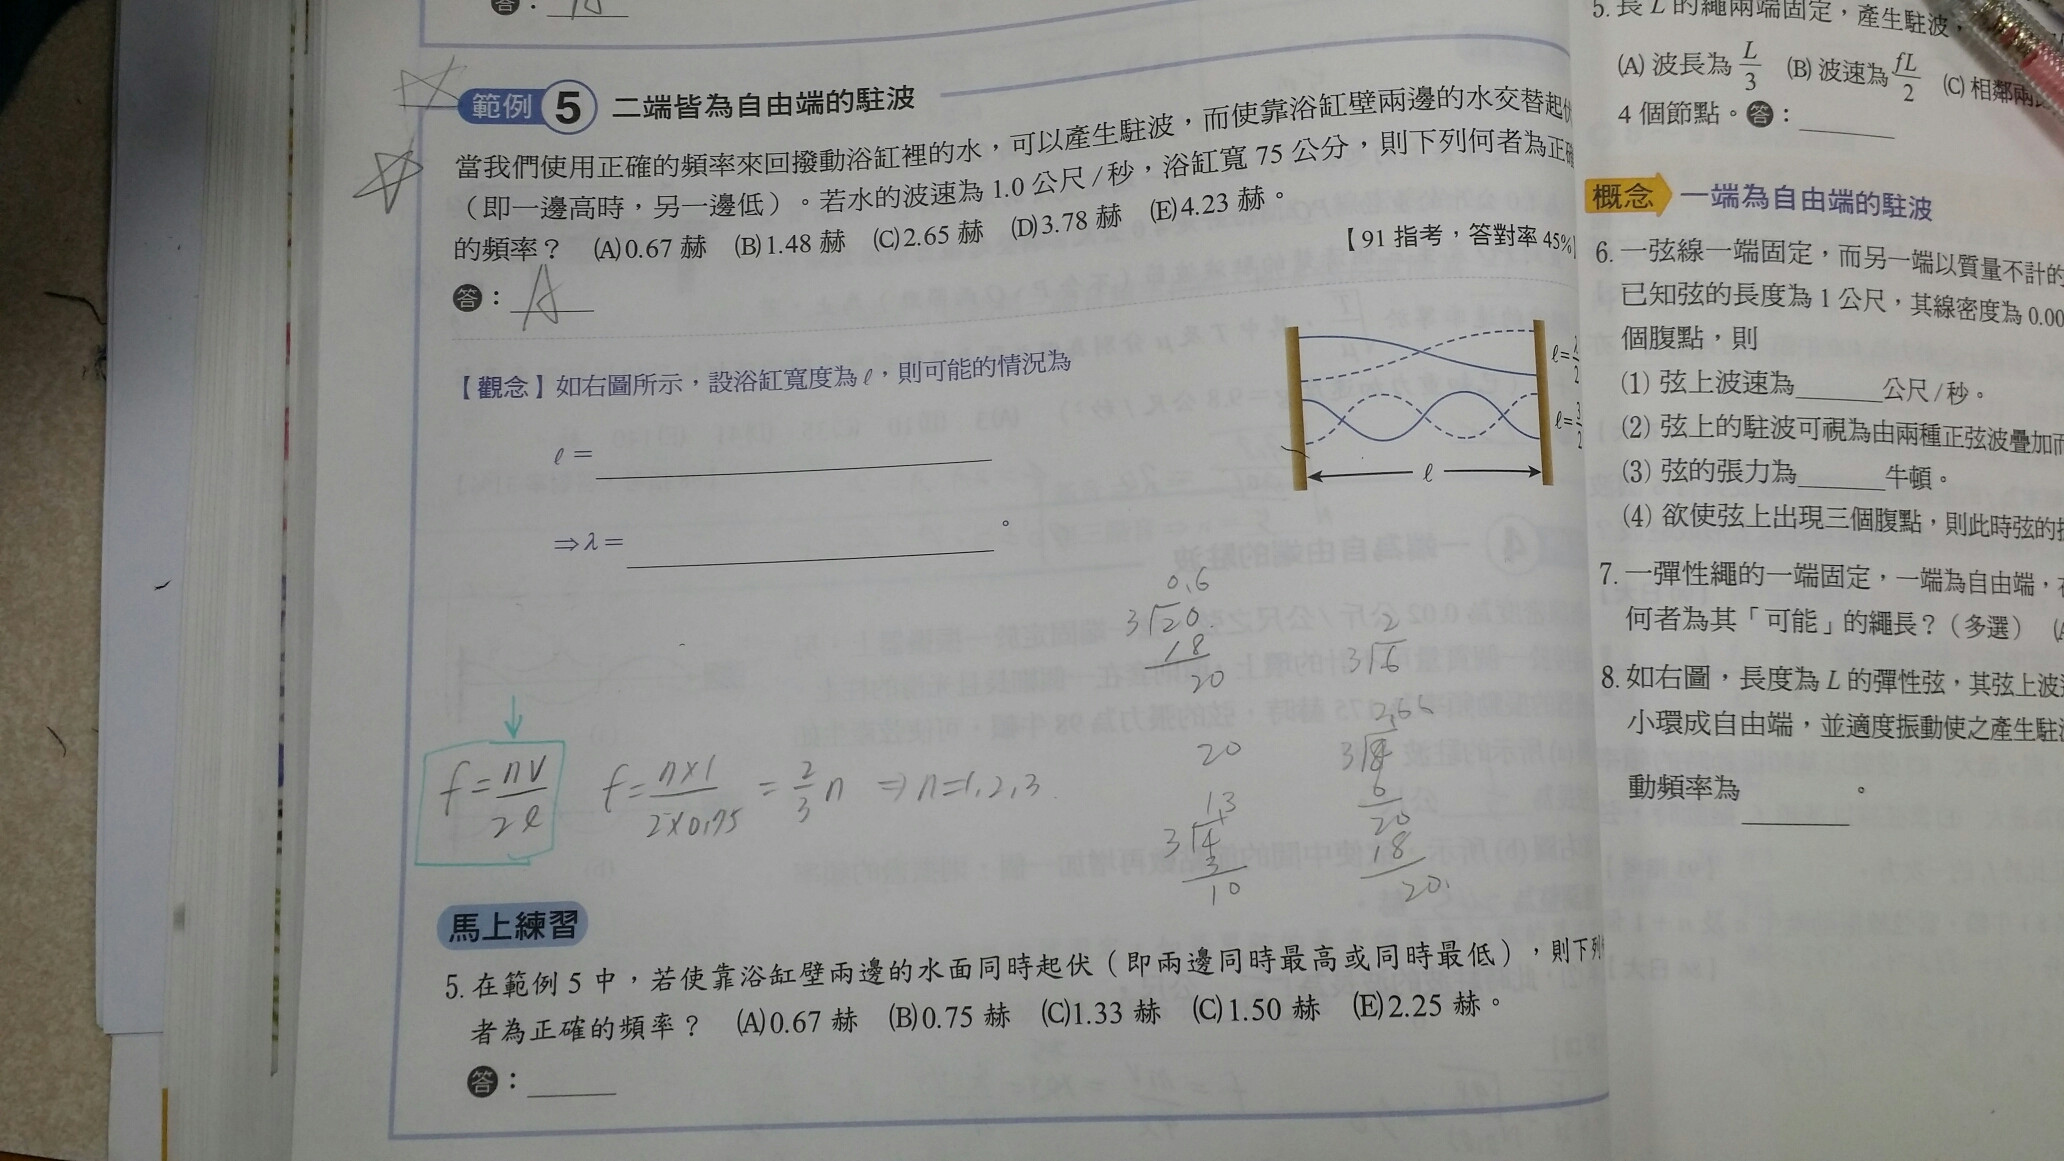 答：
範例 5 二端皆為自由端的駐波
當我們使用正確的頻率來回撥動浴缸裡的水，可以產生駐波，而使靠浴缸壁兩邊的水交替起伏
（即一邊高時，另一邊低）。若水的波速為 1.0 公尺/秒，浴缸寬 75 公分，則下列何者為正確
的頻率？ (A)0.67 赫 (B)1.48 赫 (C)2.65 赫 (D)3.78 赫 (E)4.23 赫。
【91 指考，答對率 45%】
答：A
【觀念】如右圖所示，設浴缸寬度為 ℓ，則可能的情況為
ℓ =
⇒ λ = 。
ℓ = λ/2
ℓ = 3/2
ℓ
0.6
3√20.
18
20
20
1.3
3√4
3
10
2
3√6
2.66
3√8
6
20
18
20.
f = nv/2ℓ f = n×1/2×0.75 = 2/3 n ⇒ n=1,2,3.
馬上練習
5. 在範例 5 中，若使靠浴缸壁兩邊的水面同時起伏（即兩邊同時最高或同時最低），則下列
者為正確的頻率？ (A)0.67 赫 (B)0.75 赫 (C)1.33 赫 (C)1.50 赫 (E)2.25 赫。
答：
5. 長 L 的繩兩端固定，產生駐波，
(A) 波長為 L/3 (B) 波速為 fL/2 (C) 相鄰兩
4 個節點。答：
概念 一端為自由端的駐波
6. 一弦線一端固定，而另一端以質量不計的
已知弦的長度為 1 公尺，其線密度為 0.00
個腹點，則
(1) 弦上波速為 公尺/秒。
(2) 弦上的駐波可視為由兩種正弦波疊加而
(3) 弦的張力為 牛頓。
(4) 欲使弦上出現三個腹點，則此時弦的
7. 一彈性繩的一端固定，一端為自由端，
何者為其「可能」的繩長？（多選）
8. 如右圖，長度為 L 的彈性弦，其弦上波
小環成自由端，並適度振動使之產生駐
動頻率為 。